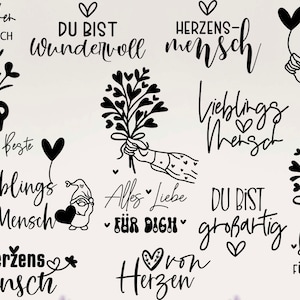 DU BIST
wundervoll
HERZENS-
mensch
Lieblings
Mensch
Beste
Mensch
Alles Liebe
FÜR DICH
DU BIST
großartig
von
Herzen